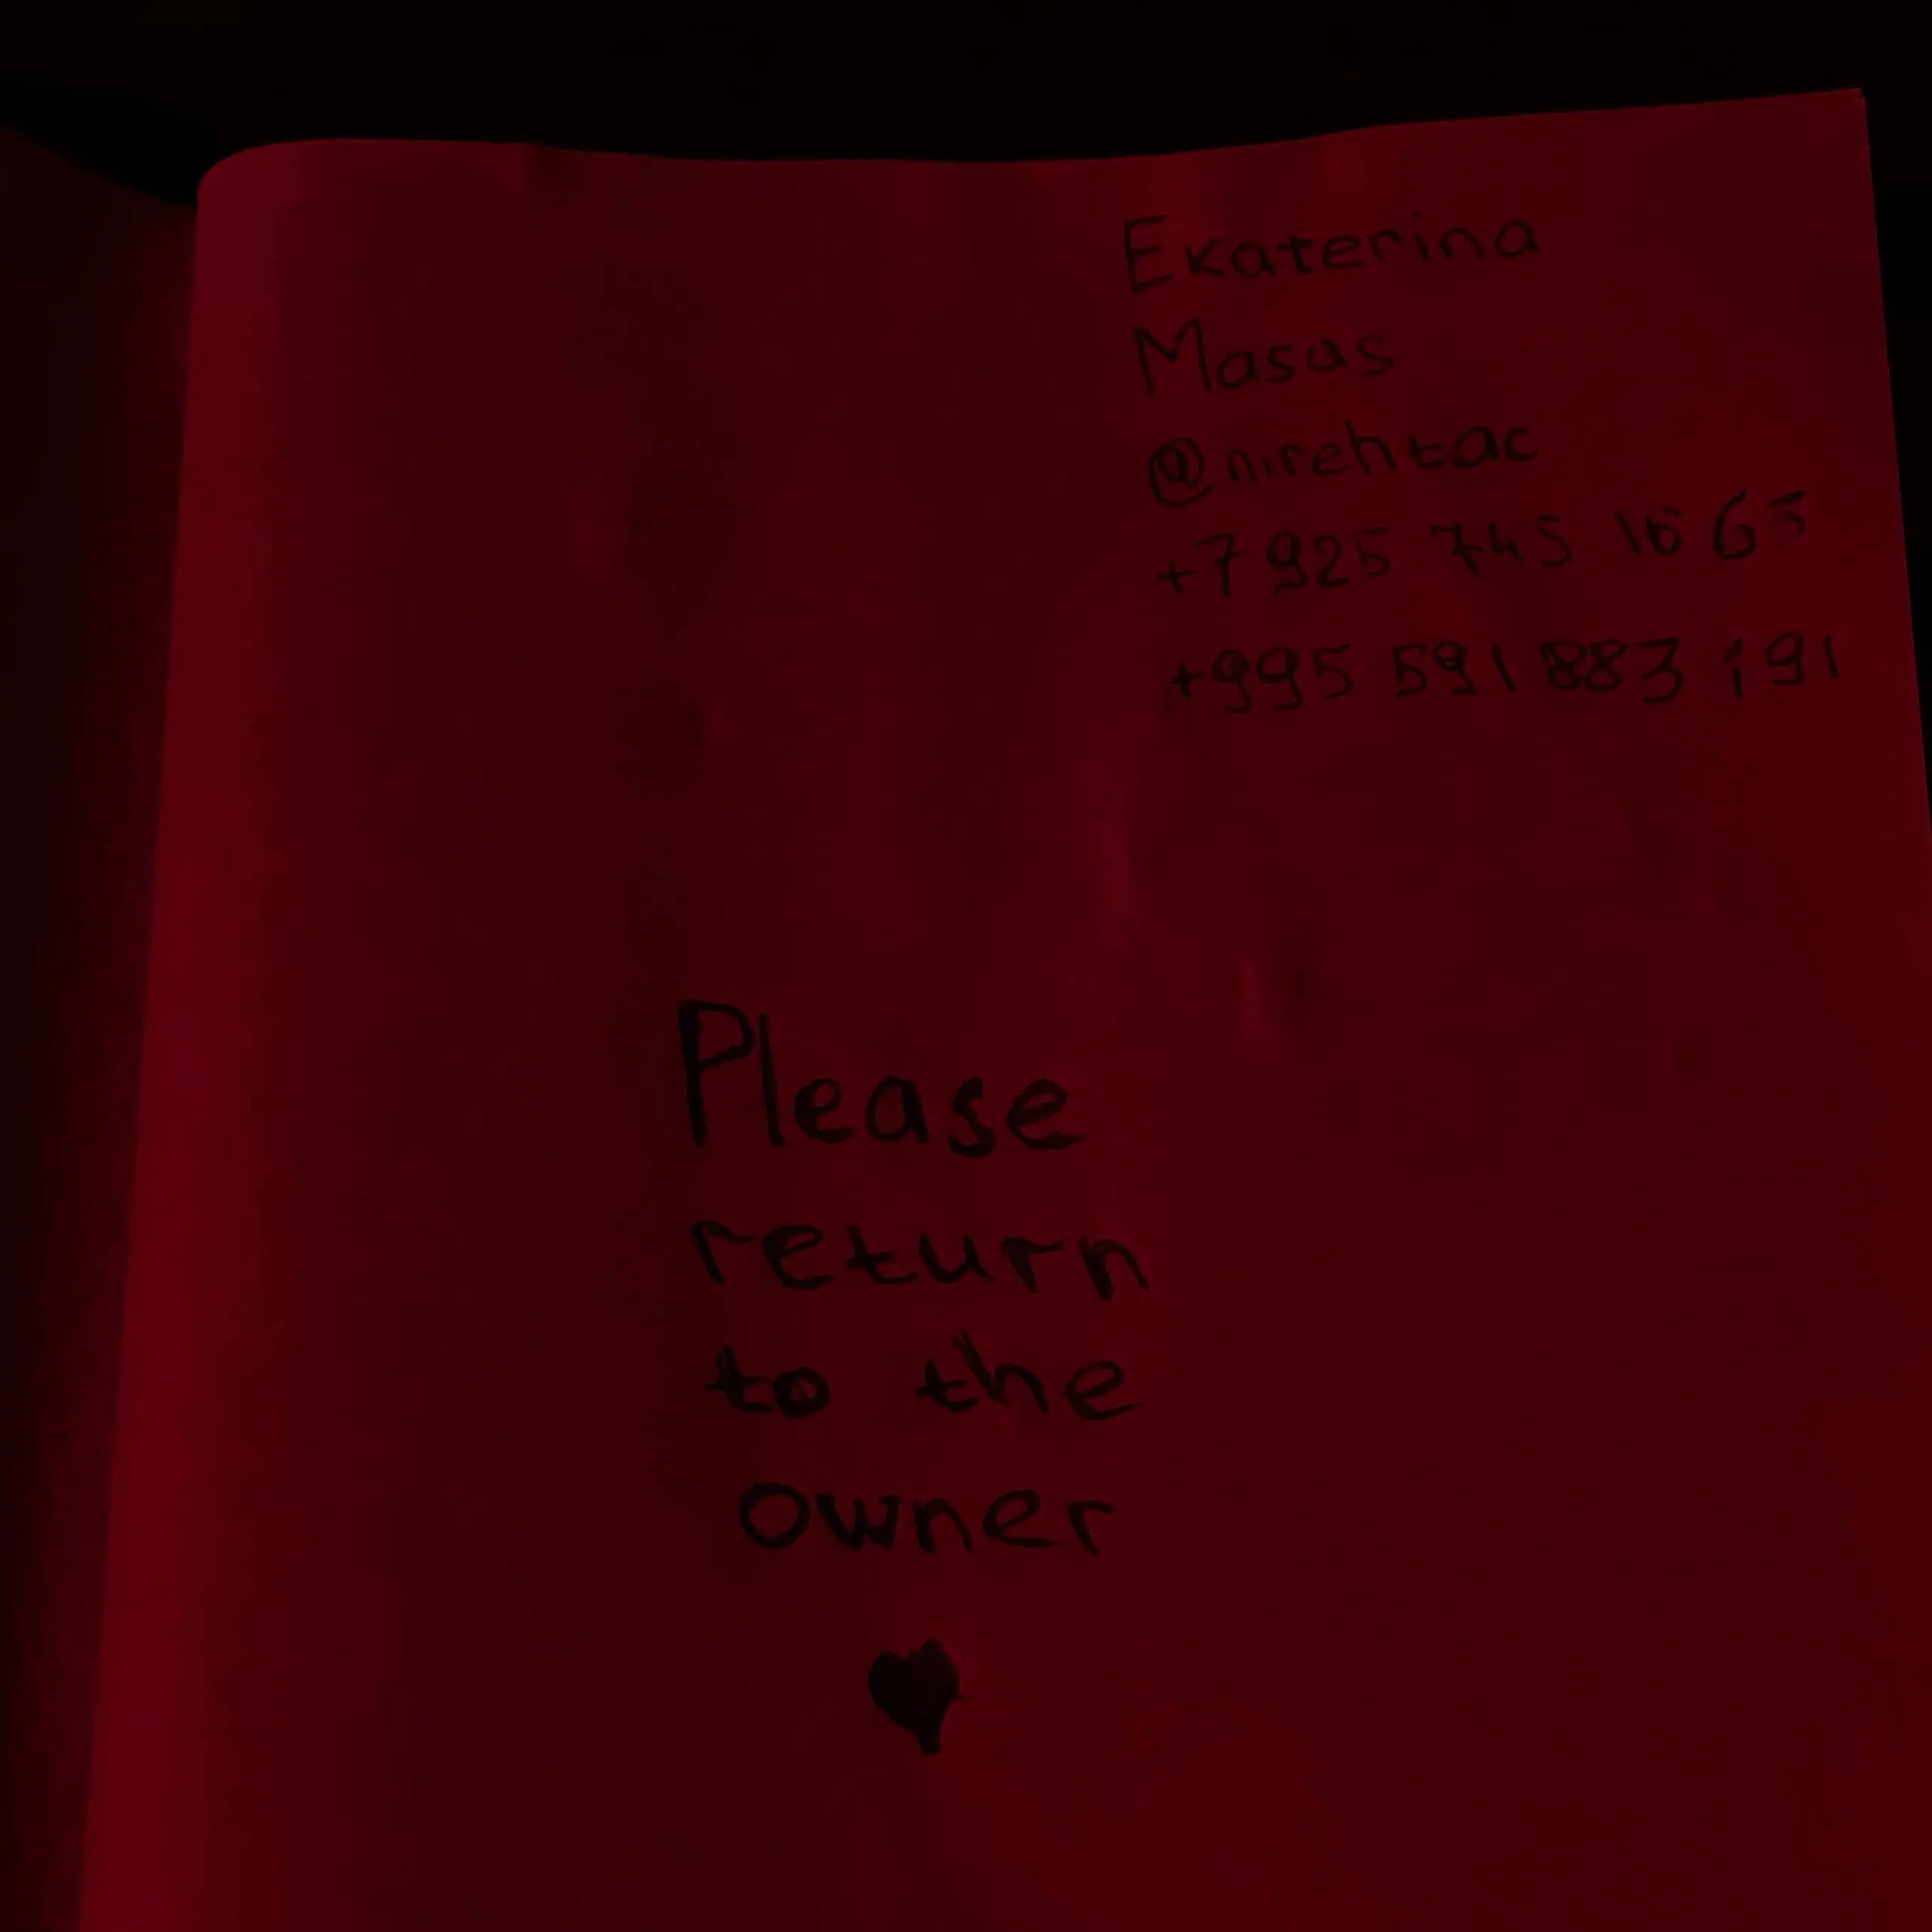 Ekaterina
Masas
@nirehtac
+7 925 745 16 65
+995 591 883 191
Please
return
to the
owner